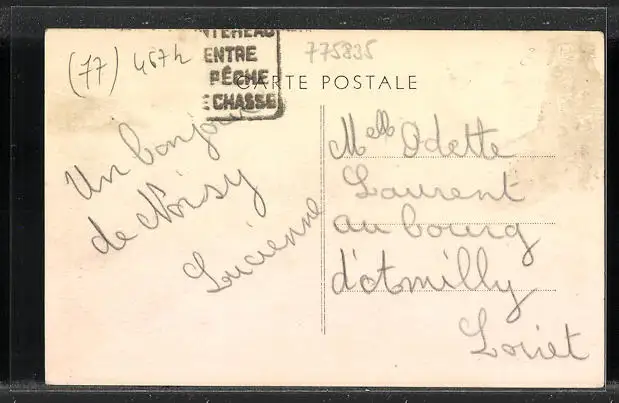 (77) 457h
775835
ENTRE
PÊCHE
CHASSE
CARTE POSTALE
Un bonjour
de Noisy
Lucienne
Melle Odette
Laurent
au bourg
d'Amilly
Loiret